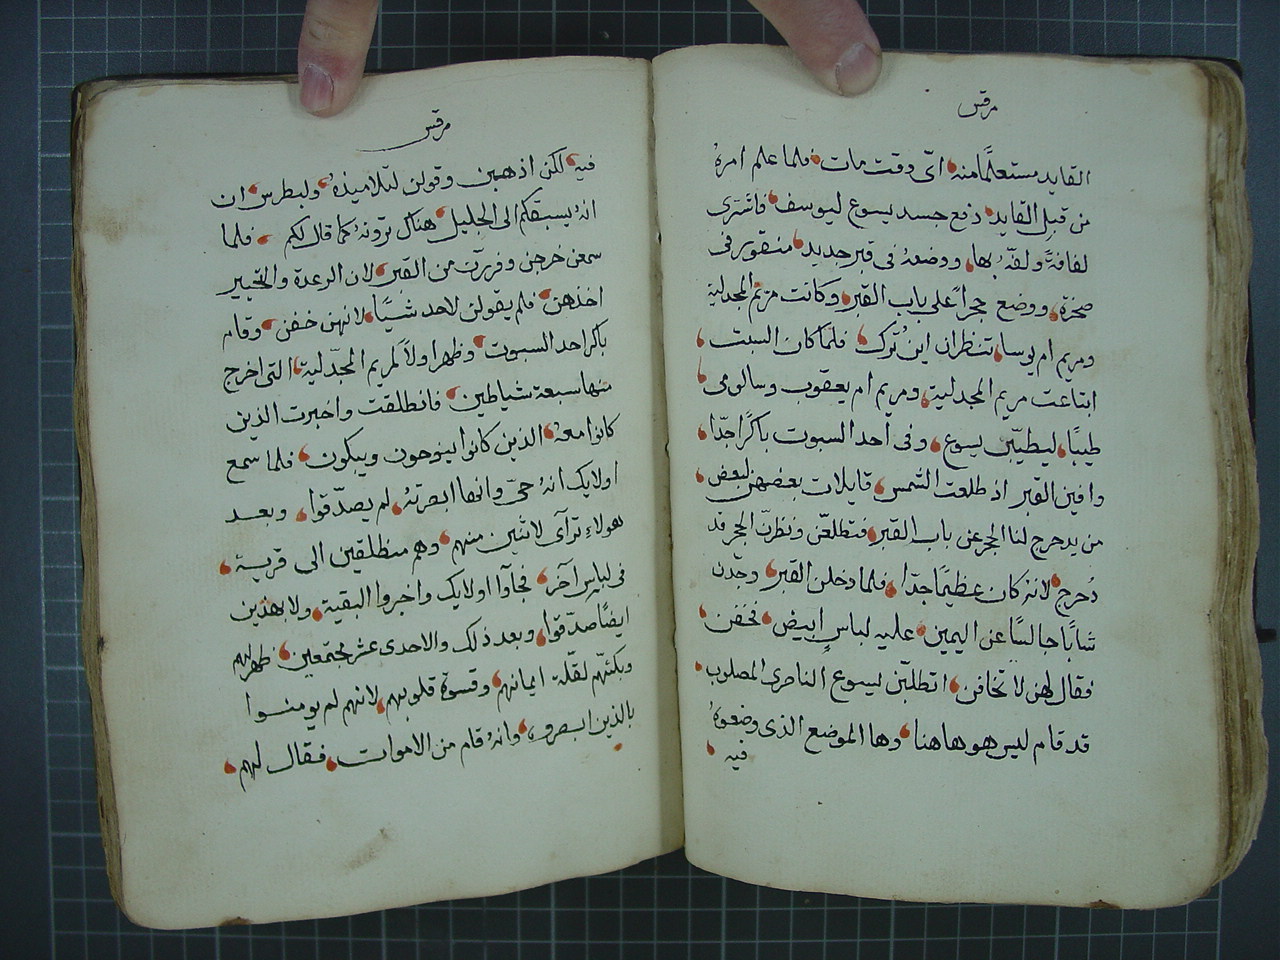 مرقس
القايد مستعلمًا منه، اىّ وقت مات، فلما علم امرهُ
من قبل القايد، دفع جسد يسوع ليوسف، فاشترى
لفافةً ولفّهُ بها، ووضعهُ فى قبرٍ جديد، منقور فى
صخرة، ووضع حجراً على باب القبر، وكانت مريم المجدلية
ومريم ام يوسا، تنظران اين تُرك، فلمّا كان السبت،
ابتاعت مريم المجدلية، ومريم ام يعقوب وسالومى،
طيبًا، ليطيّبن يسوع، وفى احد السبوت باكرًا جدّا،
وافين القبر اذ طلعت الشمس، قايلات بعضهن لبعض،
من يدحرج لنا الحجر عن باب القبر، فتطلعّن ونظرنّ الحجر قد
دُحرج، لانهُ كان عظيمًا جدّا، فلما دخلن القبر، وجدّن
شابًا جالسًا عن اليمين، عليه لباسٍ ابيض، فخفن،
فقال لهن لا تخافن، اتطلبّن يسوع الناصرى المصلوب،
قد قام ليس هو هاهنا، وها الموضع الذى وضعوهُ
فيه،
مرقس
فيه، لكن اذهبن وقولن لتلاميذهُ، ولبطرس، ان
انهُ يسبقكم الى الجليل، هناك ترونهُ كما قال لكم، فلما
سمعن خرجن وفررن من القبر، لان الرعدة والتحيير
اخذهن، فلم يقولن لاحد شيًّا، لانهن خفن، وقام
باكر احد السبوت، وظهر اولاً لمريم المجدّلية، التى اخرج
منها سبعة شياطين، فانطلقت واخبرت الذين
كانوا معهُ، الذين كانوا ينوحون ويبكون، فلما سمع
اولايك انهُ حىّ وانها ابصرتهُ، لم يصدّقوا، وبعد
هولاءِ ترآى لاثنين منهم، وهم منطلقين الى قرية،
فى لباسٍ آخر، فجاوآ اولايك واخبروا البقية، ولا بهذين
ايضًا صدّقوا، وبعد ذلك والاحدى عشر مجتمعين، ظهر لهم
وبكتهّم لقلّة ايمانهم، وقسوة قلوبهم، لانهم لم يومنوا
بالذين ابصروه، وانهُ قام من الاموات، فقال لهم،